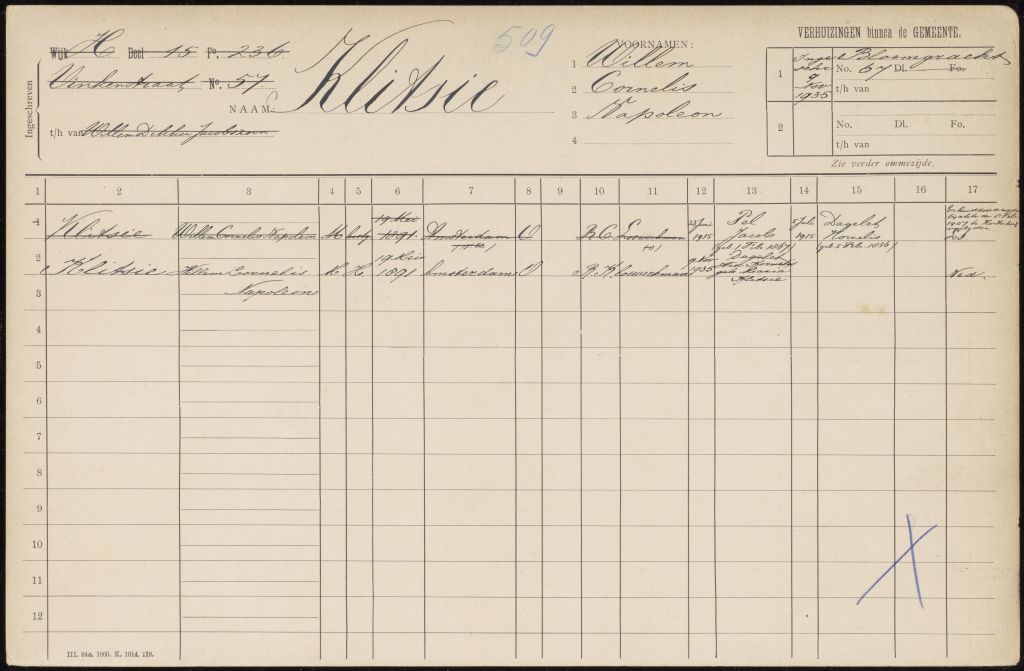 509
Wijk H Deel 15 Fo. 236
Vinkenstraat No. 57
NAAM: Klitsie
t/h van Willem Dekker Jacobszoon
Ingeschreven
VOORNAMEN:
1 Willem
2 Cornelis
3 Napoleon
4
VERHUIZINGEN binnen de GEMEENTE.
1 9 Nov 1935 Bloemgracht
No. 67 Dl. Fo.
t/h van
2 No. Dl. Fo.
t/h van
Zie verder ommezijde.
1 2 3 4 5 6 7 8 9 10 11 12 13 14 15 16 17
1 Klitsie Willem Cornelis Napoleon M 19 Mei 1891 Amsterdam O R.C. 1915 Pel Jacob (geb. 1 Feb. 1867) 5 Feb 1915 Dagelet Kornelis (geb. 5 Feb. 1836)
2 Klitsie Willem Cornelis Napoleon 19 Mei 1891 Amsterdam O R.K. 9 Nov 1935 Dagelet geb. Maria Klitsie Ned.
3
4
5
6
7
8
9
10
11
12
III. 8to. 1000. K. 1914. 118.